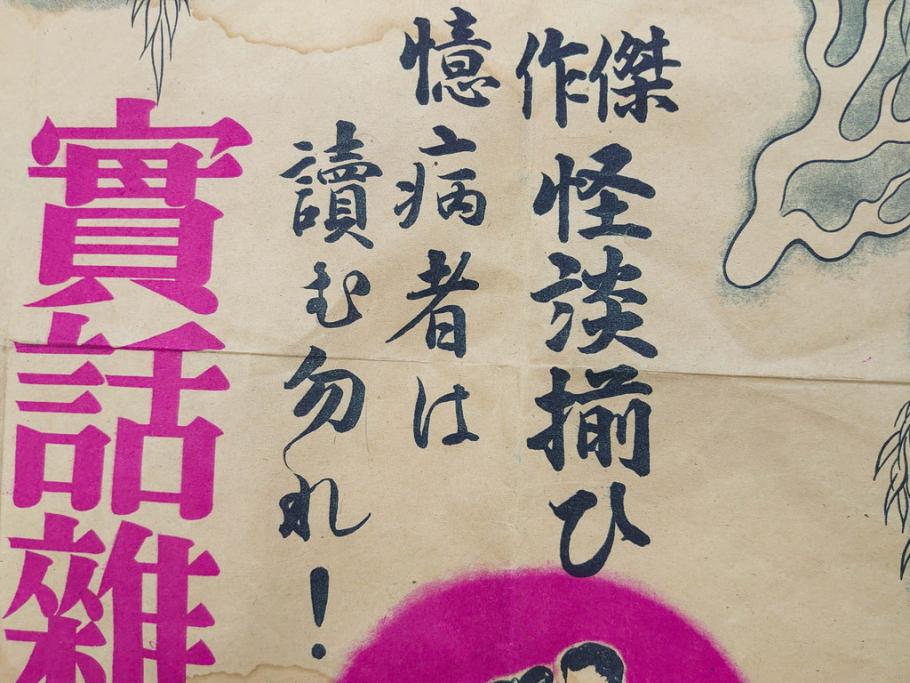 傑作怪談揃ひ
憶病者は
讀む勿れ!
實話雜